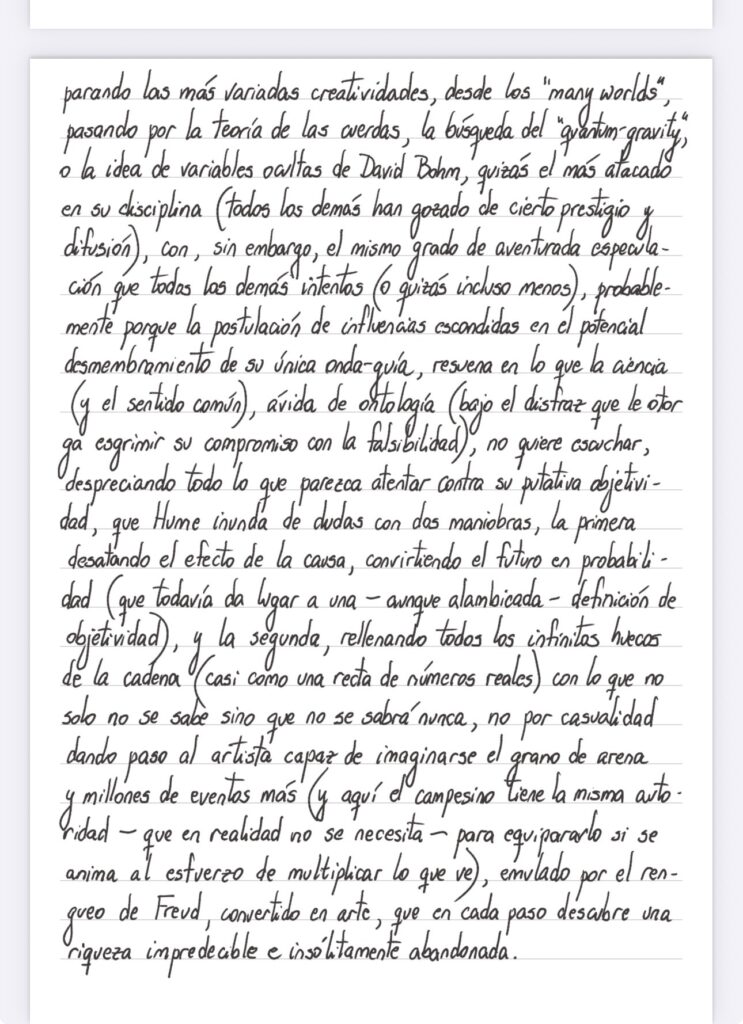 parando las más variadas creatividades, desde los "many worlds",
pasando por la teoría de las cuerdas, la búsqueda del "quantum-gravity",
o la idea de variables ocultas de David Bohm, quizás el más atacado
en su disciplina (todos los demás han gozado de cierto prestigio y
difusión), con, sin embargo, el mismo grado de aventurada especula-
ción que todos los demás intentos (o quizás incluso menos), probable-
mente porque la postulación de influencias escondidas en el potencial
desmembramiento de su única onda-guía, resuena en lo que la ciencia
(y el sentido común), ávida de ontología (bajo el disfraz que le otor
ga esgrimir su compromiso con la falsibilidad), no quiere escuchar,
despreciando todo lo que parezca atentar contra su putativa objetivi-
dad, que Hume inunda de dudas con dos maniobras, la primera
desatando el efecto de la causa, convirtiendo el futuro en probabili-
dad (que todavía da lugar a una - aunque alambicada - definición de
objetividad), y la segunda, rellenando todos los infinitos huecos
de la cadena (casi como una recta de números reales) con lo que no
solo no se sabe sino que no se sabrá nunca, no por casualidad
dando paso al artista capaz de imaginarse el grano de arena
y millones de eventos más (y aquí el campesino tiene la misma auto-
ridad - que en realidad no se necesita - para equipararlo si se
anima al esfuerzo de multiplicar lo que ve), emulado por el ren-
gueo de Freud, convertido en arte, que en cada paso descubre una
riqueza impredecible e insólitamente abandonada.